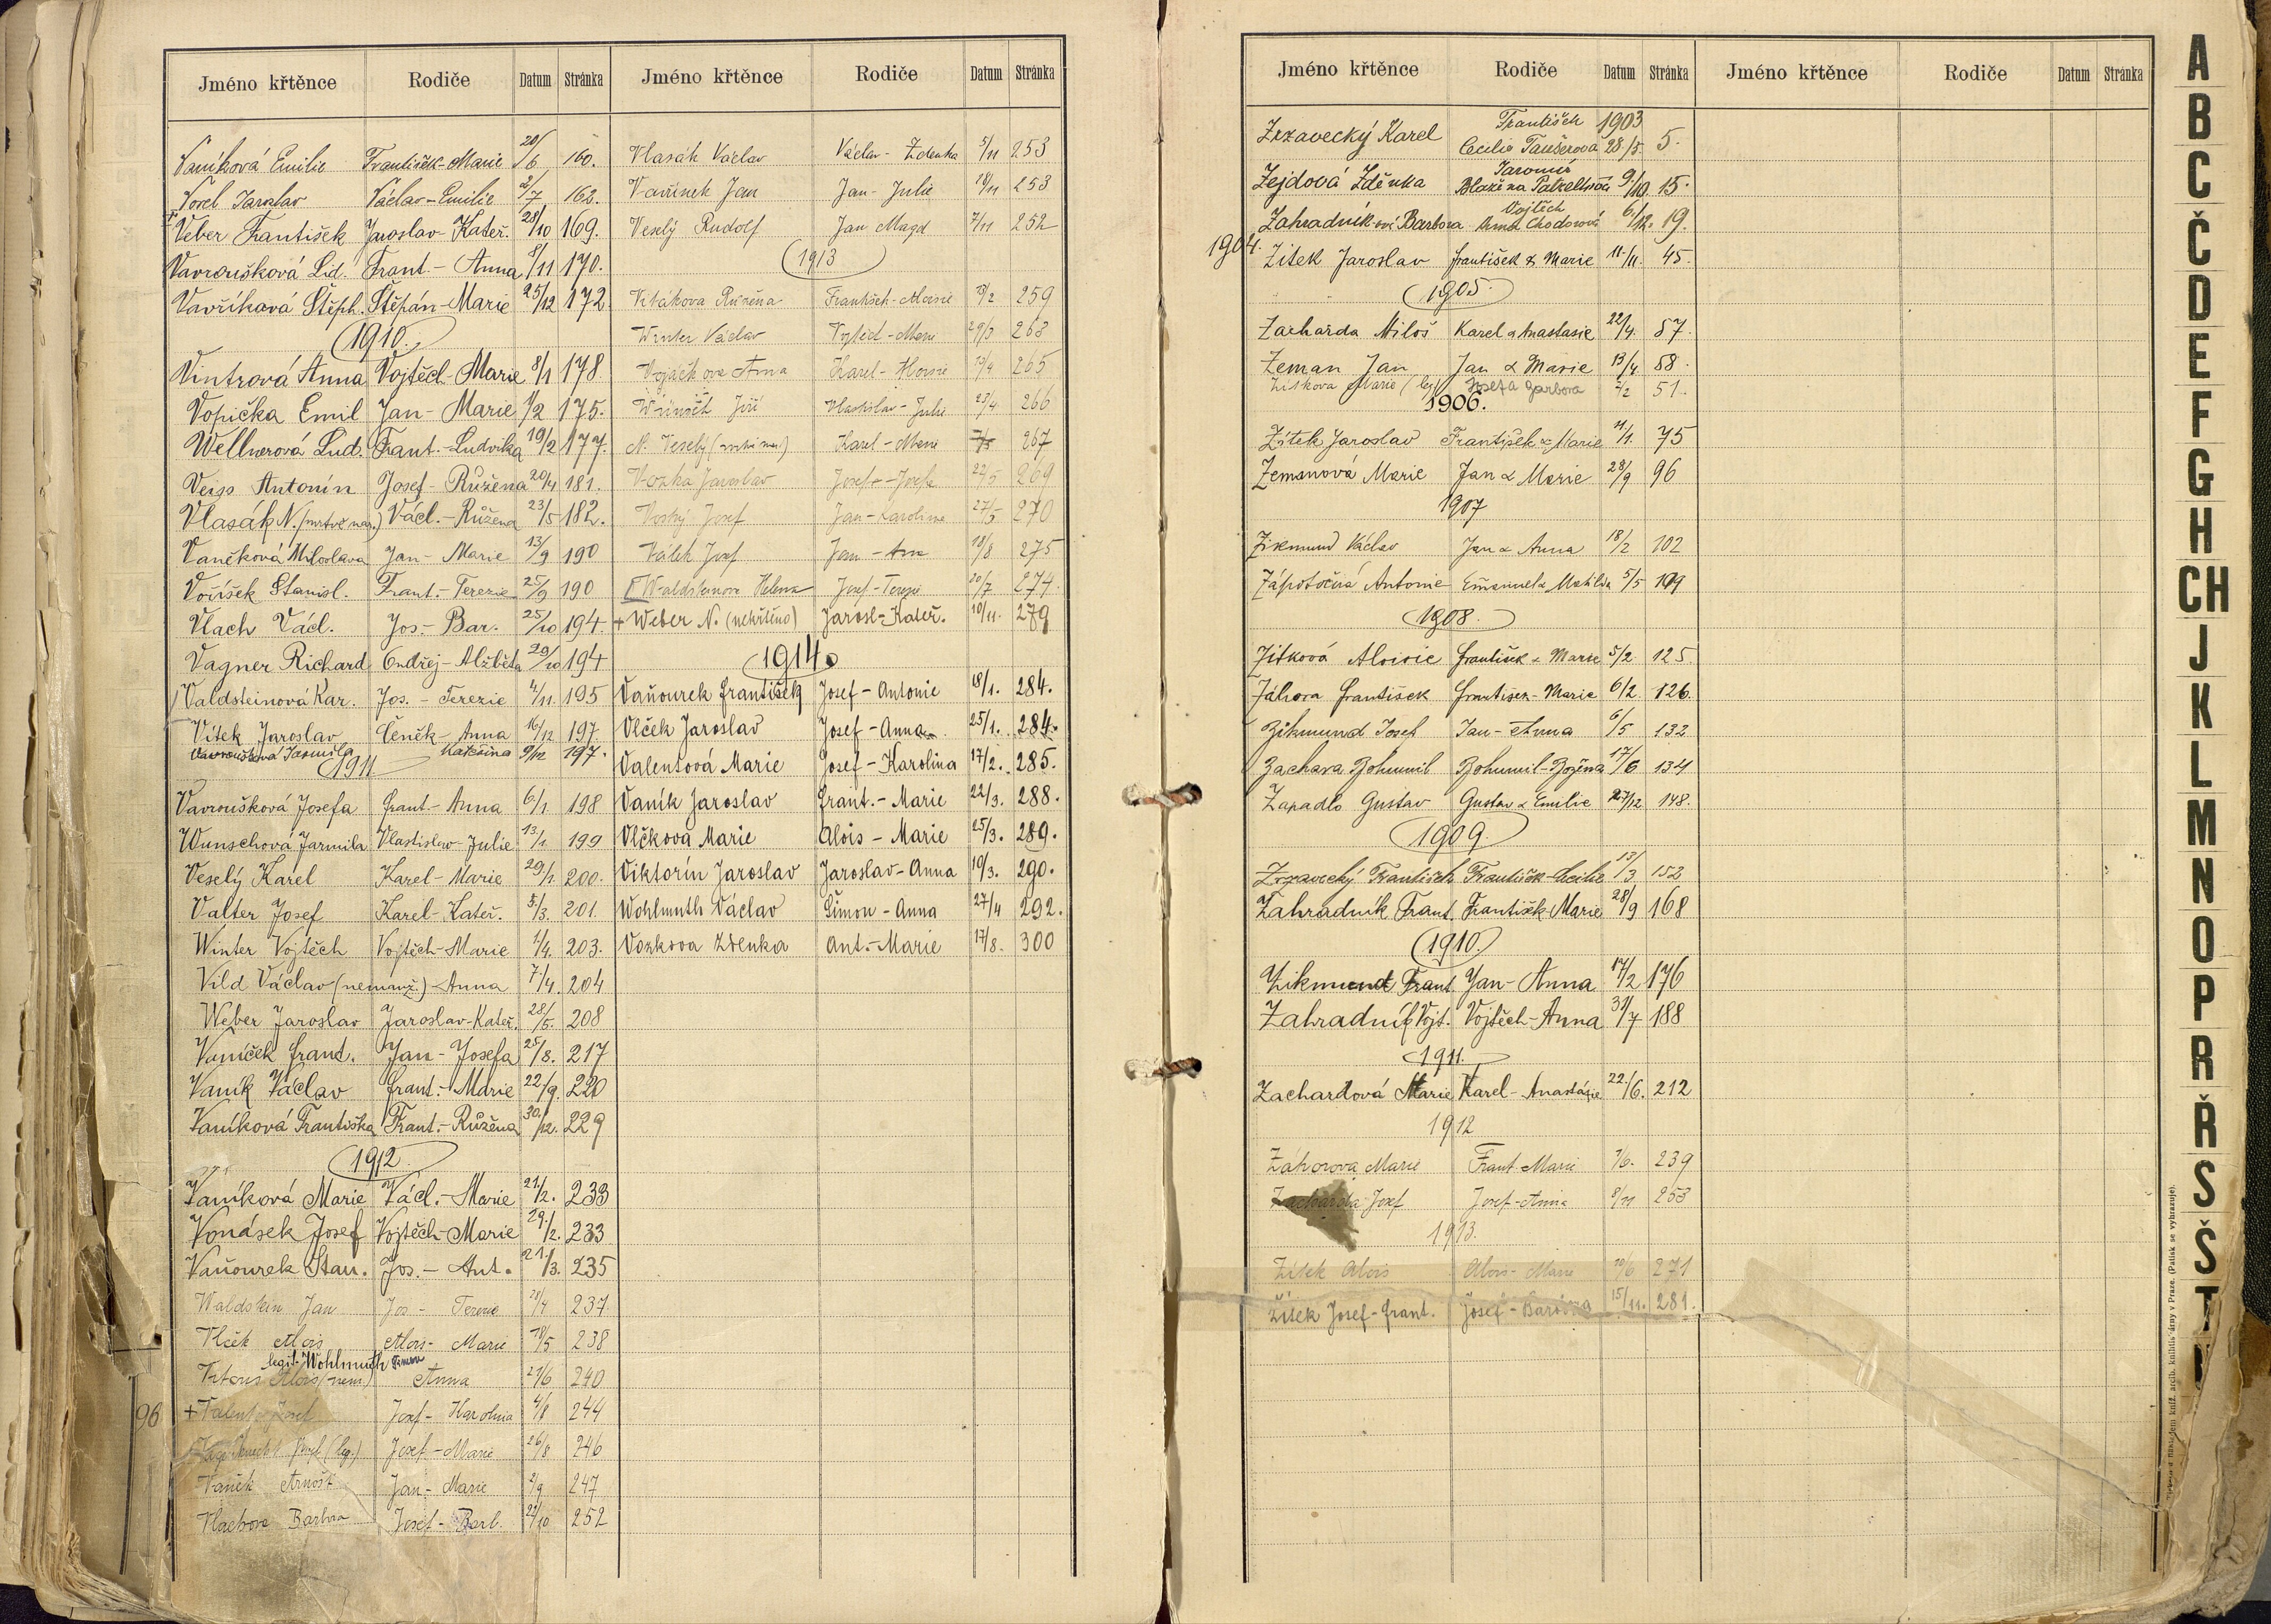 Jméno křtěnce Rodiče Datum Stránka
Vaníková Emilie František-Marie 20/6 160.
Vorel Jaroslav Václav-Emilie 2/7 162.
Veber František Jaroslav-Kateř. 28/10 169.
Vavroušková Lid. Frant.-Anna 8/11 170.
Vavříková Štěph. Štěpán-Marie 25/12 172.
1910.
Vintrová Anna Vojtěch-Marie 8/1 178
Vopička Emil Jan-Marie 1/2 175.
Wellnerová Lud. Frant.-Ludvika 19/2 177.
Veiss Antonín Josef-Růžena 20/4 181.
Vlasák N. (mrtvě nar.) Václ.-Růžena 23/5 182.
Vaněková Miloslava Jan-Marie 13/9 190
Voříšek Stanisl. Frant.-Terezie 25/9 190
Vlach Václ. Jos.-Bar. 25/10 194.
Vagner Richard Ondřej-Alžběta 29/10 194
Valdsteinová Kar. Jos.-Terezie 4/11 195
Vítek Jaroslav Čeněk-Anna 16/12 197
Vavroušková Jarmila Kateřina 9/12 197.
1911
Vavroušková Josefa Frant-Anna 6/1 198
Wünschová Jarmila Vlastislav-Julie 13/1 199
Veselý Karel Karel-Marie 29/1. 200.
Valter Josef Karel-Kateř. 5/3. 201.
Winter Vojtěch Vojtěch-Marie 1/4. 203.
Vild Václav (nemanž.)-Anna 7/4. 204
Weber Jaroslav Jaroslav-Kateř. 28/5. 208
Vaníček Frant. Jan-Josefa 25/8. 217
Vaník Václav Frant.-Marie 22/9. 220
Vaníková Františka Frant.-Růžena 30/12. 229
1912.
Vaníková Marie Václ.-Marie 21/2. 233
Vonásek Josef Vojtěch-Marie 29/2. 233
Vaňourek Stan. Jos.-Ant. 21/3. 235
Waldstein Jan Jos-Terezie 28/4 237.
Vlček Alois Alois-Marie 18/5 238
legit. Wohlmuth Šimon
Alois (nem.) Anna 21/6 240
+ Valent Josef Josef-Karolina 4/8 244
96
Josef (leg.) Josef-Marie 26/8 246
Vaněk Arnošt Jan-Marie 2/9 247
Vlachova Barbora Josef-Barb. 22/10 252
Jméno křtěnce Rodiče Datum Stránka
Vlasák Václav Václav-Zdenka 5/11 253
Vavřinek Jan Jan-Julie 18/11 253
Veselý Rudolf Jan Magd 7/11 252
1913
Vrtákova Růžena František-Marie 259
Winter Václav Vojtěch-Marie 29/3 263
Vojáčkova Anna Karel- 265
Wünsch Jiří Vlastislav-Julie 23/4 266
N. Veselý Karel-Marie 267
Vozka Jaroslav Josef-Josefa 22/5 269
Josef Jan-Karolina 27/5 270
Válek Josef Jan-Ana 18/8 275
Waldsteinova Helena Josef-Terezie 20/7 274.
+ Weber N. (nekřtěno) Jarosl-Kateř. 10/11. 279
1914.
Vaňourek František Josef-Antonie 18/1. 284.
Vlček Jaroslav Josef-Anna 25/1. 284.
Valentová Marie Josef-Karolina 17/2. 285.
Vaník Jaroslav Frant.-Marie 22/3. 288.
Vlčková Marie Alois-Marie 25/3. 289.
Viktorín Jaroslav Jaroslav-Anna 19/3. 290.
Wohlmuth Václav Šimon-Anna 27/4 292.
Vozkova Zdenka Ant.-Marie 17/8. 300
Jméno křtěnce Rodiče Datum Stránka Jméno křtěnce Rodiče Datum Stránka
František 1903
Zrzavecký Karel Cecilie Taušerová 28/5. 5.
Jaromír
Zejdová Zděnka Blažena Patzeltová 9/10. 15.
Vojtěch
Zahradníková Barbora Anna Chodorová 6/12. 19.
1904.
Zítek Jaroslav František & Marie 11/11. 45.
1905.
Zacharda Miloš Karel a Anastasie 22/4. 57.
Zeman Jan Jan & Marie 13/4. 58.
Zítkova Marie (leg) Josef a Barbora 2/2 51.
1906.
Zítek Jaroslav František & Marie 11/1. 75
Zemanová Marie Jan & Marie 28/9 96
1907
Zikmund Václav Jan & Anna 18/2 102
Zápotočná Antonie Emanuel & Matilda 5/5 109
1908.
Zítková Aloisie František & Marie 5/2 125.
Záhora František František-Marie 6/2. 126.
Zikmund Josef Jan-Anna 6/5 132
Zachara Bohumil Bohumil-Božena 17/6 134
Zapadlo Gustav Gustav & Emilie 27/12 148.
1909.
Zrzavecký František František-Cecilie 13/3 152
Zahradník Frant. František Marie 28/9 168
1910.
Zikmund Frant Jan-Anna 17/2 176
Zahradník Vojt. Vojtěch-Anna 31/7 188
1911.
Zachardová Marie Karel-Anastásie 22/6. 212
1912
Záhorova Marie Frant-Marie 7/6. 239
Zacharda Josef Josef-Anna 8/11 253
1913.
Zítek Alois Alois-Marie 19/6 271
Žítek Josef-Frant. Josef-Barbora 15/11. 281.
A
B
C
Č
D
E
F
G
H
CH
J
K
L
M
N
O
P
R
Ř
S
Š
T